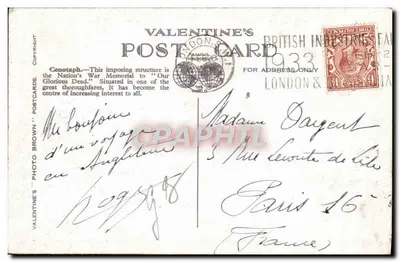 VALENTINE'S
POST CARD
Cenotaph.— This imposing structure is
the Nation's War Memorial to "Our
Glorious Dead." Situated in one of the
great thoroughfares, it has become the
centre of increasing interest to all.
FOR ADDRESS ONLY
BRITISH INDUSTRIES FA
1933
LONDON &
LONDON
VALENTINE'S "PHOTO BROWN" POSTCARDS COPYRIGHT
Un bonjour
d'un voyage
en Angleterre
Madame Dargent
3 Rue Leconte de Lisle
Paris 16e
(France)
CPAPHIL.com